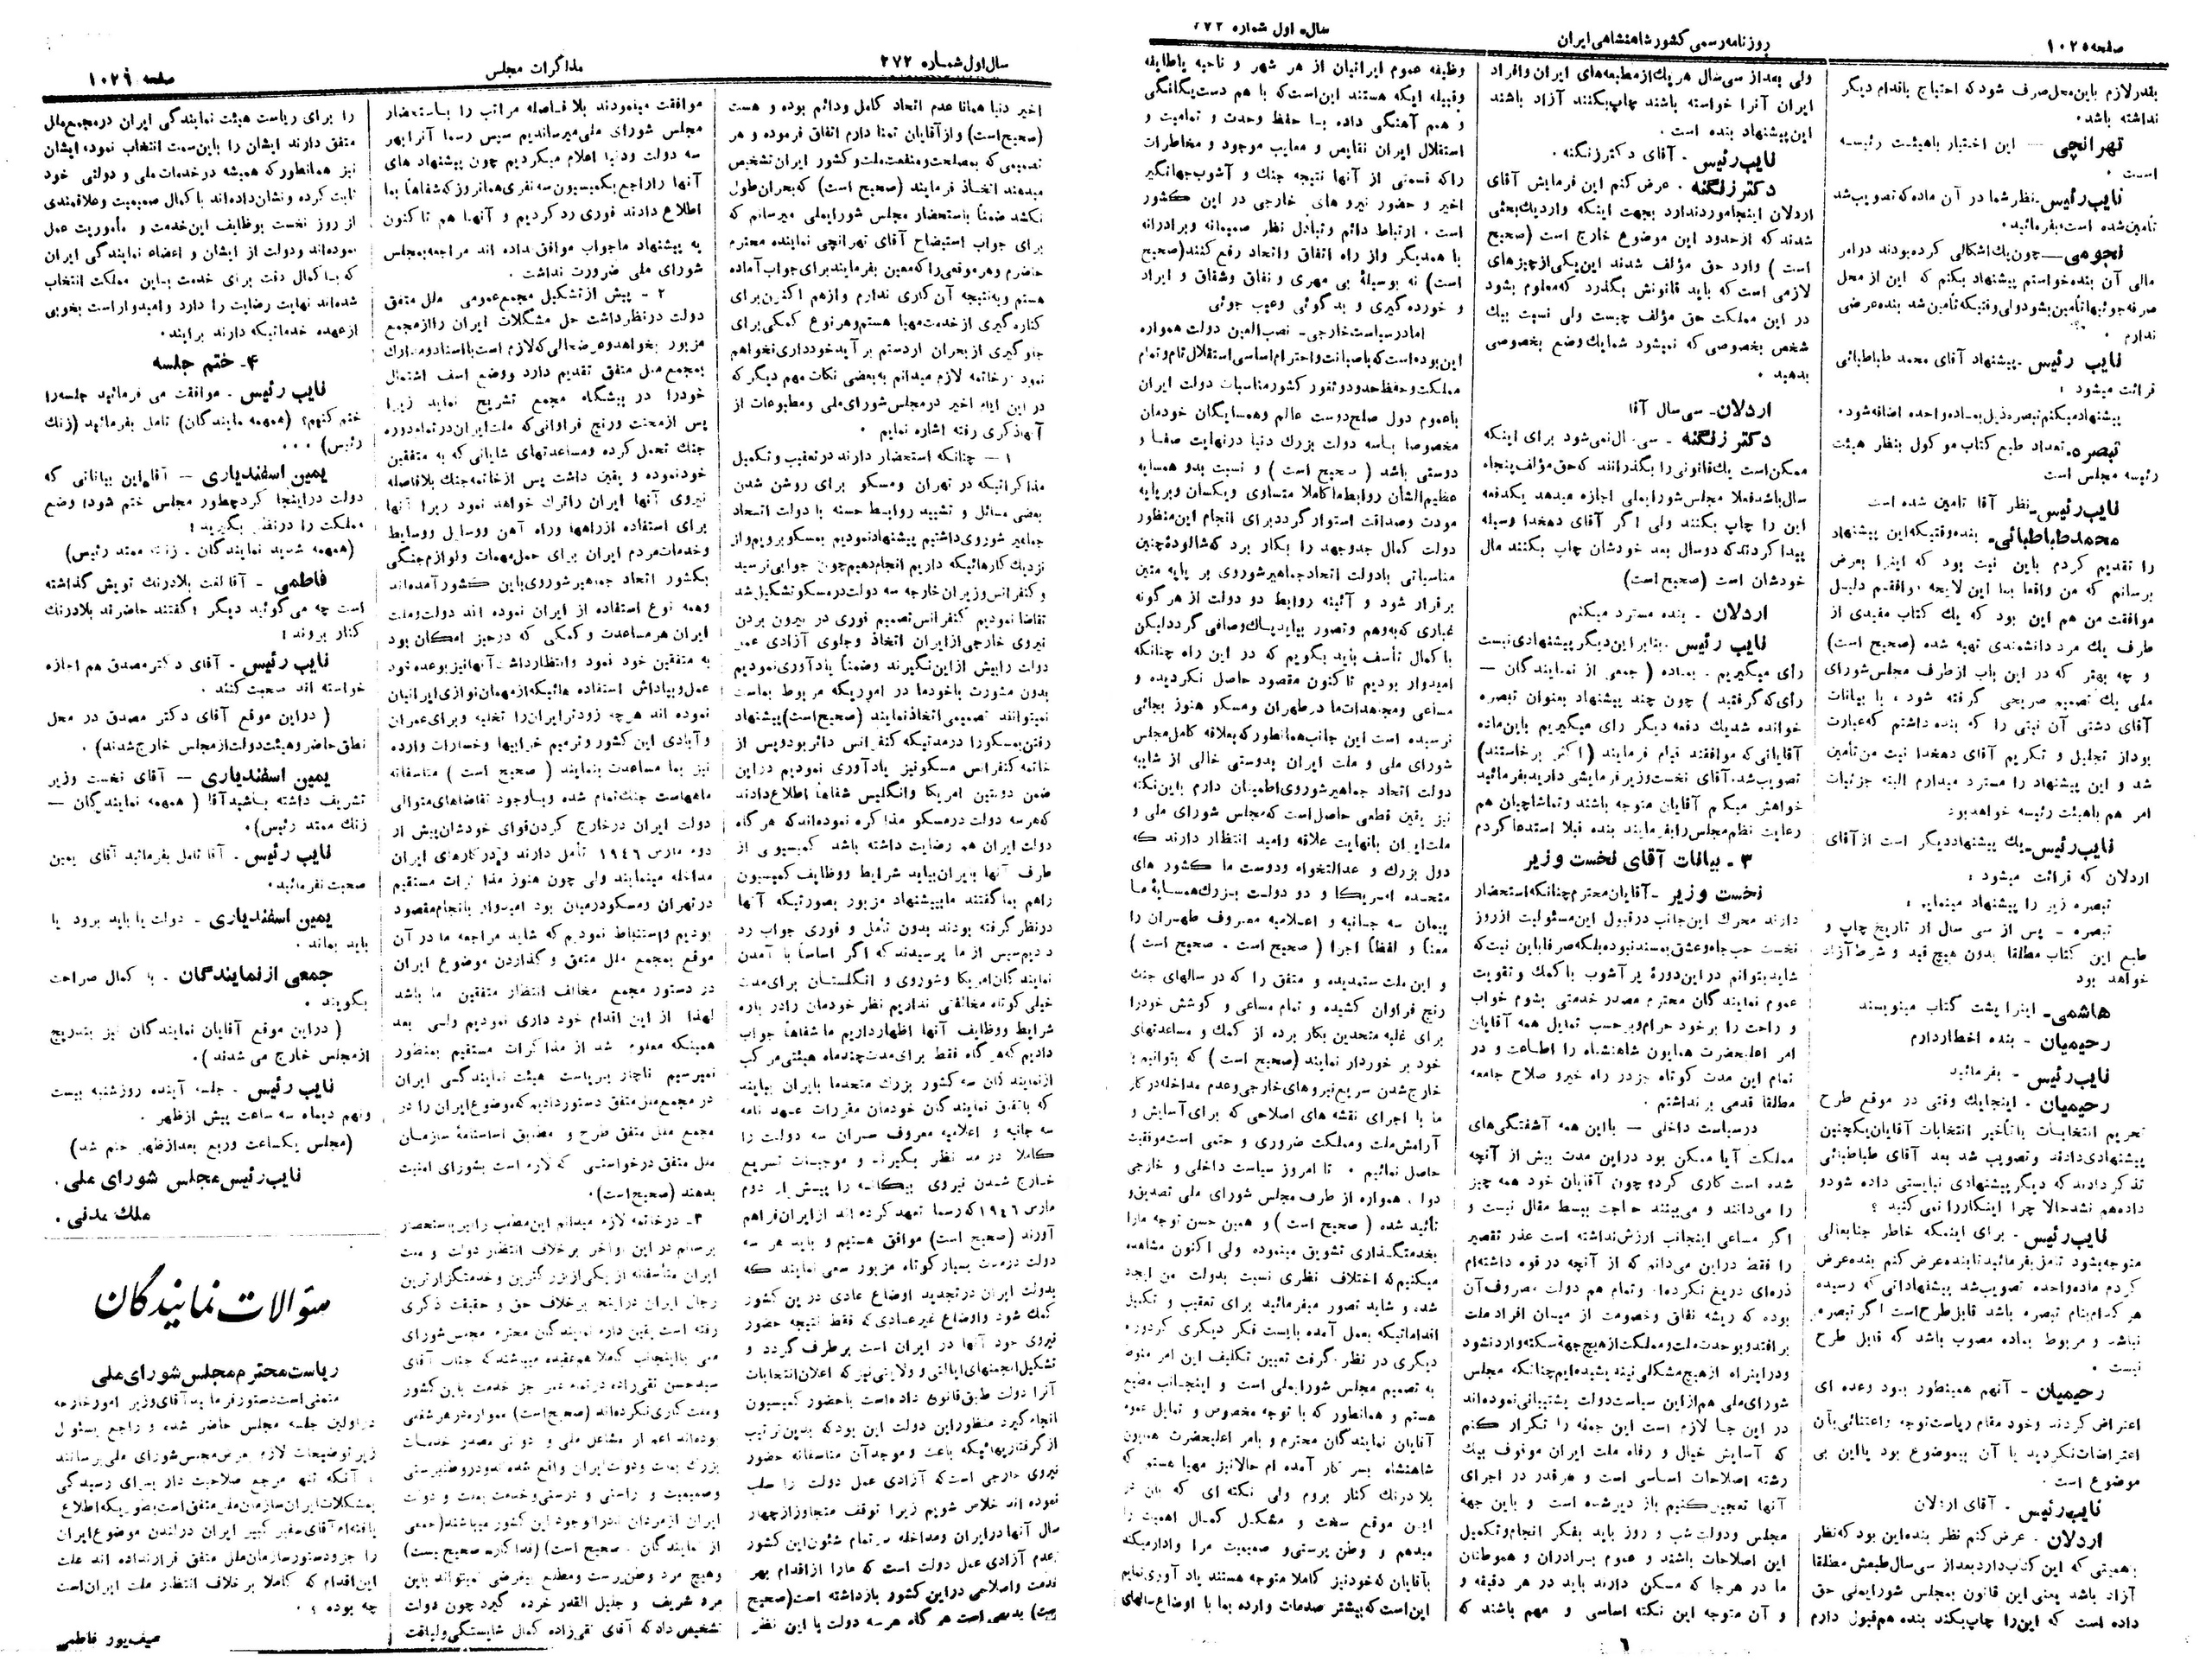 صفحه ۱۰۲۵
روزنامه رسمی کشور شاهنشاهی ایران
سال اول شماره ۲۷۲
بقدر لازم باین محل صرف شود که احتیاج باقدام دیگر
نداشته باشد.
تهرانچی — این اختیار با هیئت رئیسه
است.
نایب رئیس - نظر شما در آن ماده که تصویب شد
تأمین شده است، بفرمائید.
انجومی — چون یک اشکالی کرده بودند در امر
مالی آن بنده خواستم پیشنهاد بکنم که این از محل
صرفه جوئیها تأمین بشود ولی وقتیکه تأمین شد بنده عرضی
ندارم.
نایب رئیس - پیشنهاد آقای محمد طباطبائی
قرائت میشود:
پیشنهاد میکنم تبصره ذیل بماده واحده اضافه شود.
تبصره ۵. تعداد طبع کتاب موکول بنظر هیئت
رئیسه مجلس است
نایب رئیس - نظر آقا تامین شده است
محمد طباطبائی - بنده وقتیکه این پیشنهاد
را تقدیم کردم باین نیت بود که اینرا بعرض
برسانم که من واقعا با این لایحه موافقم دلیل
موافقت من هم این بود که یک کتاب مفیدی از
طرف یک مرد دانشمندی تهیه شده (صحیح است)
و چه بهتر که در این باب از طرف مجلس شورای
ملی یک تصمیم صریحی گرفته شود، با بیانات
آقای دشتی آن نیتی را که بنده داشتم که عبارت
بود از تجلیل و تکریم آقای دهخدا نیت من تأمین
شد و این پیشنهاد را مسترد میدارم البته جزئیات
امر هم با هیئت رئیسه خواهد بود
نایب رئیس - یک پیشنهاد دیگر است از آقای
اردلان که قرائت میشود:
تبصره زیر را پیشنهاد مینمایم:
تبصره - پس از سی سال از تاریخ چاپ و
طبع این کتاب مطلقا بدون هیچ قید و شرط آزاد
خواهد بود
هاشمی - اینرا پشت کتاب مینویسند
رحیمیان - بنده اخطار دارم
نایب رئیس - بفرمائید
رحیمیان - اینجا یک وقتی در موقع طرح
تحریم انتخابات یا تأخیر انتخابات آقایان یکچنین
پیشنهادی دادند و تصویب شد بعد آقای طباطبائی
تذکر دادند که دیگر پیشنهادی نبایستی داده شود و
داده هم نشد حالا چرا اینکار را نمی کنید؟
نایب رئیس - برای اینکه خاطر جنابعالی
متوجه بشود تامل بفرمائید تا بنده عرض کنم بنده عرض
کردم ماده واحده تصویب شد پیشنهاداتی که رسیده
هر کدام بنام تبصره باشد قابل طرح است اگر تبصره
نباشد و مربوط بماده مصوب باشد که قابل طرح
نیست.
رحیمیان - آنهم همینطور بود وعده ای
اعتراض کردند و خود مقام ریاست توجه و اعتنائی بآن
اعتراضات نکردید یا آن بیموضوع بود یا این بی
موضوع است.
نایب رئیس - آقای اردلان
اردلان - عرض کنم نظر بنده این بود که نظر
باهمیتی که این کتاب دارد بعد از سی سال طبعش مطلقا
آزاد باشد یعنی این قانون بمجلس شورایملی حق
داده است که این را چاپ بکند بنده هم قبول دارم
ولی بعد از سی سال هر یک از مطبعه های ایران و افراد
ایران آنرا خواسته باشند چاپ بکنند آزاد باشند
این پیشنهاد بنده است.
نایب رئیس - آقای دکتر زنگنه.
دکتر زنگنه - عرض کنم این فرمایش آقای
اردلان اینجا مورد ندارد بجهت اینکه وارد یک بحثی
شدند که از حدود این موضوع خارج است (صحیح
است) وارد حق مؤلف شدند این یکی از چیزهای
لازمی است که باید قانونش بگذرد که معلوم بشود
در این مملکت حق مؤلف چیست ولی نسبت بیک
شخص بخصوصی که نمیشود شما یک وضع بخصوصی
بدهید.
اردلان - سی سال آقا
دکتر زنگنه - سی سال نمی شود برای اینکه
ممکن است یک قانونی را بگذرانند که حق مؤلف پنجاه
سال باشد فعلا مجلس شورایملی اجازه میدهد یکدفعه
این را چاپ بکنند ولی اگر آقای دهخدا وسیله
پیدا کردند که دو سال بعد خودشان چاپ بکنند مال
خودشان است (صحیح است)
اردلان - بنده مسترد میکنم
نایب رئیس - بنابراین دیگر پیشنهادی نیست
رأی میگیریم. بماده (جمعی از نمایندگان —
رأی که گرفتید) چون چند پیشنهاد بعنوان تبصره
خوانده شد یک دفعه دیگر رای میگیریم باین ماده
آقایانی که موافقند قیام فرمایند (اکثر برخاستند)
تصویب شد. آقای نخست وزیر فرمایشی دارید بفرمائید
خواهش میکنم آقایان متوجه باشند و تماشاچیان هم
رعایت نظم مجلس را بفرمایند بنده قبلا استدعا کردم
۳ - بیانات آقای نخست وزیر
نخست وزیر - آقایان محترم چنانکه استحضار
دارند محرک اینجانب در قبول این مسئولیت از روز
نخست حب جاه و عشق بمسند نبوده بلکه صرفا باین نیت که
شاید بتوانم در این دورهٔ پر آشوب با کمک و تقویت
عموم نمایندگان محترم مصدر خدمتی بشوم خواب
و راحت را بر خود حرام و بر حسب تمایل همه آقایان
امر اعلیحضرت همایون شاهنشاه را اطاعت و در
تمام این مدت کوتاه جز در راه خیر و صلاح جامعه
مطلقا قدمی برنداشتم.
در سیاست داخلی — با این همه آشفتگی های
مملکت آیا ممکن بود در این مدت بیش از آنچه
شده است کاری کرد؟ چون آقایان خود همه چیز
را می دانند و می بینند حاجت ببسط مقال نیست و
اگر مساعی اینجانب ارزش نداشته است عذر تقصیر
را فقط در این می دانم که از آنچه در قوه داشته ام
ذره ای دریغ نکرده ام. و تمام هم دولت مصروف آن
بوده که ریشه نفاق و خصومت از میان افراد ملت
برافتد و بوحدت ملت و مملکت از هیچ جهة سکته وارد نشود
و در این راه از هیچ مشکلی نیندیشیده ایم چنانکه مجلس
شورای ملی هم از این سیاست دولت پشتیبانی نموده اند
در این جا لازم است این جمله را تکرار کنم
که آسایش خیال و رفاه ملت ایران موقوف بیک
رشته اصلاحات اساسی است و هر قدر در اجرای
آنها تعجیل کنیم باز دیر شده است و باین جهة
مجلس و دولت شب و روز باید بفکر انجام و تکمیل
این اصلاحات باشند و عموم برادران و هموطنان
ما در هر جا که مسکن دارند باید در هر دقیقه و
و آن متوجه این نکته اساسی و مهم باشند که
وظیفه عموم ایرانیان از هر شهر و ناحیه یا طایفه
و قبیله ایکه هستند این است که با هم دست یگانگی
و هم آهنگی داده با حفظ وحدت و تمامیت و
استقلال ایران نقایص و معایب موجود و مخاطرات
را که قسمتی از آنها نتیجه جنگ و آشوب جهانگیر
اخیر و حضور نیروهای خارجی در این کشور
است. ارتباط دائم و تبادل نظر صمیمانه و برادرانه
با همدیگر و از راه اتفاق و اتحاد رفع کنند (صحیح
است) نه بوسیلهٔ بی مهری و نفاق و شقاق و ایراد
و خورده گیری و بدگوئی و عیب جوئی
اما در سیاست خارجی - نصب العین دولت همواره
این بوده است که با صیانت و احترام اساسی استقلال تام و تمام
مملکت و حفظ حدود و ثغور کشور مناسبات دولت ایران
با عموم دول صلح دوست عالم و همسایگان خودمان
مخصوصا با سه دولت بزرگ دنیا در نهایت صفا و
دوستی باشد (صحیح است) و نسبت بدو همسایه
عظیم الشأن روابط ما کاملا متساوی و یکسان و بر پایه
مودت و صداقت استوار گردد برای انجام این منظور
دولت کمال جدوجهد را بکار برد که شالودهٔ چنین
مناسباتی با دولت اتحاد جماهیر شوروی بر پایه متین
برقرار شود و آئینه روابط دو دولت از هر گونه
غباری که بوهم و تصور بیاید پاک و صافی گردد لیکن
با کمال تأسف باید بگویم که در این راه چنانکه
امیدوار بودیم تاکنون مقصود حاصل نگردیده و
مساعی و مجاهدات ما در طهران و مسکو هنوز بجائی
نرسیده است این جانب همانطور که بعلاقه کامل مجلس
شورای ملی و ملت ایران بدوستی خالی از شایبه
دولت اتحاد جماهیر شوروی اطمینان دارم باین نکته
نیز یقین قطعی حاصل است که مجلس شورای ملی و
ملت ایران با نهایت علاقه و امید انتظار دارند که
دول بزرگ و عدالتخواه و دوست ما کشورهای
متحده امریکا و دو دولت بزرگ همسایهٔ ما
پیمان سه جانبه و اعلامیه معروف طهران را
معناً و لفظاً اجرا (صحیح است - صحیح است)
و این ملت ستمدیده و متفق را که در سالهای جنگ
رنج فراوان کشیده و تمام مساعی و کوشش خود را
برای غلبه متحدین بکار برده از کمک و مساعدتهای
خود برخوردار نمایند (صحیح است) که بتوانیم با
خارج شدن سریع نیروهای خارجی و عدم مداخله در کار
ما با اجرای نقشه های اصلاحی که برای آسایش و
آرامش ملت و مملکت ضروری و حتمی است موفقیت
حاصل نمائیم. تا امروز سیاست داخلی و خارجی
دولت همواره از طرف مجلس شورای ملی تصدیق و
تأئید شده (صحیح است) و همین حسن توجه ما را
بخدمتگذاری تشویق مینموده ولی اکنون مشاهده
میکنیم که اختلاف نظری نسبت بدولت من ایجاد
شده و شاید تصور میفرمائید برای تعقیب و تکمیل
اقداماتیکه بعمل آمده بایست فکر دیگری کرد و راه
دیگری در نظر گرفت تعیین تکلیف این امر منوط
به تصمیم مجلس شورایملی است و اینجانب مطیع
هستم و همانطور که با توجه مخصوص و تمایل عموم
آقایان نمایندگان محترم و بامر اعلیحضرت همایون
شاهنشاه بسر کار آمده ام حالا نیز مهیا هستم که
بلادرنگ کنار بروم ولی نکته ای که من در
این موقع سخت و مشکل کمال اهمیت را
میدهم و وطن پرستی و صمیمیت مرا وادار میکند
بآقایان که خود نیز کاملا متوجه هستند یاد آوری نمایم
این است که بیشتر صدمات وارده بما یا اوضاع سالهای
۶
سال اول شماره ۲۷۲
مذاکرات مجلس
صفحه ۱۰۲۶
اخیر دنیا همانا عدم اتحاد کامل و دائم بوده و هست
(صحیح است) و از آقایان تمنا دارم اتفاق فرموده و هر
تصمیمی که بمصلحت و منفعت ملت و کشور ایران تشخیص
میدهند اتخاذ فرمایند (صحیح است) که بحران طول
نکشد ضمناً باستحضار مجلس شورایملی میرسانم که
برای جواب استیضاح آقای تهرانچی نماینده محترم
حاضرم و هر موقعی را که معین بفرمایند برای جواب آماده
هستم و به نتیجه آن کاری ندارم و از هم اکنون برای
کناره گیری از خدمت مهیا هستم و هر نوع کمکی برای
جلوگیری از بحران از دستم برآید خودداری نخواهم
نمود در خاتمه لازم میدانم به بعضی نکات مهم دیگر که
در این ایام اخیر در مجلس شورای ملی و مطبوعات از
آنها ذکری رفته اشاره نمایم.
۱ — چنانکه استحضار دارند در تعقیب و تکمیل
مذاکراتیکه در تهران و مسکو برای روشن شدن
بعضی مسائل و تشیید روابط حسنه با دولت اتحاد
جماهیر شوروی داشتیم پیشنهاد نمودیم بمسکو برویم و از
نزدیک کارهائیکه داریم انجام دهیم چون جوابی نرسید
و کنفرانس وزیران خارجه سه دولت در مسکو تشکیل شد
تقاضا نمودیم کنفرانس تصمیم فوری در بیرون بردن
نیروی خارجی از ایران اتخاذ و جلوی آزادی عمل
دولت را بیش از این نگیرند و ضمناً یادآوری نمودیم
بدون مشورت با خود ما در اموریکه مربوط بماست
نمیتوانند تصمیمی اتخاذ نمایند (صحیح است) پیشنهاد
رفتن بمسکو را در مدتیکه کنفرانس دائر بود و پس از
خاتمه کنفرانس مسکو نیز یادآوری نمودیم در این
ضمن دولتین امریکا و انگلیس شفاهاً اطلاع دادند
که هر سه دولت در مسکو مذاکره نموده اند که هر گاه
دولت ایران هم رضایت داشته باشد کمیسیونی از
طرف آنها بایران بیاید شرایط و وظایف کمیسیون
را هم بما گفتند ما پیشنهاد مزبور بصورتیکه آنها
در نظر گرفته بودند بدون تأمل و فوری جواب رد
دادیم سپس از ما پرسیدند که اگر اساساً با آمدن
نمایندگان امریکا و شوروی و انگلستان برای مدت
خیلی کوتاه مخالفتی نداریم نظر خودمان را در باره
شرایط و وظایف آنها اظهار داریم ما شفاهاً جواب
دادیم که هر گاه فقط برای مدت چند ماه هیئتی مرکب
از نمایندگان سه کشور بزرگ متحد ما بایران بیایند
که باتفاق نمایندگان خودمان مقررات عهد نامه
سه جانبه و اعلامیه معروف سران سه دولت را
کاملا در مد نظر بگیرند و موجبات تسریع
خارج شدن نیروی بیگانه را پیش از دوم
مارس ۱۹٤٦ که رسما تعهد کرده اند از ایران فراهم
آورند (صحیح است) موافق هستیم و باید هر سه
دولت در مدت بسیار کوتاه مزبور سعی نمایند که
بدولت ایران در تجدید اوضاع عادی در این کشور
کمک شود و اوضاع غیر عادی که فقط نتیجه حضور
نیروی خود آنها در ایران است برطرف گردد و
تشکیل انجمنهای ایالتی و ولایتی نیز که اعلان انتخابات
آنرا دولت طبق قانون داده است با حضور کمیسیون
انجام گیرد منظور این دولت این بود که بدین ترتیب
از گرفتاریهائیکه باعث و موجد آن متاسفانه حضور
نیروی خارجی است که آزادی عمل دولت را سلب
نموده اند خلاص شویم زیرا توقف متجاوز از چهار
سال آنها در ایران و مداخله در تمام شئون این کشور
عدم آزادی عمل دولت است که ما را از اقدام بهر
خدمت و اصلاحی در این کشور بازداشته است (صحیح
است) بدیهی است هر گاه هر سه دولت با این نظر
موافقت مینمودند بلافاصله مراتب را باستحضار
مجلس شورای ملی میرساندیم سپس رسما آنرا بهر
سه دولت و دنیا اعلام میکردیم چون پیشنهاد های
آنها را راجع بکمیسیون سه نفری همانروز که شفاهاً بما
اطلاع دادند فوری رد کردیم و آنها هم تاکنون
به پیشنهاد ما جواب موافق نداده اند مراجعه بمجلس
شورای ملی ضرورت نداشت.
۲ - پیش از تشکیل مجمع عمومی ملل متفق
دولت در نظر داشت حل مشکلات ایران را از مجمع
مزبور بخواهد و عرضحالی که لازم است با اسناد و مدارک
بمجمع ملل متفق تقدیم دارد و وضع اسف اشتمال
خود را در پیشگاه مجمع تشریح نماید زیرا
پس از محنت و رنج فراوانی که ملت ایران در تمام دوره
جنگ تحمل کرده و مساعدتهای شایانی که به متفقین
خود نموده و یقین داشت پس از خاتمه جنگ بلافاصله
نیروی آنها ایران را ترک خواهد نمود زیرا آنها
برای استفاده از راهها و راه آهن و وسایل و وسایط
و خدمات مردم ایران برای حمل مهمات و لوازم جنگی
بکشور اتحاد جماهیر شوروی باین کشور آمده اند
و همه نوع استفاده از ایران نموده اند دولت و ملت
ایران هر مساعدت و کمکی که در حیز امکان بود
به متفقین خود نمود و انتظار داشت آنها نیز بوعده خود
عمل و بپاداش استفاده هائیکه از مهمان نوازی ایرانیان
نموده اند هر چه زودتر ایران را تخلیه و برای عمران
و آبادی این کشور و ترمیم خرابیها و خسارات وارده
نیز بما مساعدت بنمایند (صحیح است) متاسفانه
ماههاست جنگ تمام شده و با وجود تقاضاهای متوالی
دولت ایران در خارج کردن قوای خودشان پیش از
دوم مارس ۱۹٤٦ تأمل دارند و در کارهای ایران
مداخله مینمایند ولی چون هنوز مذاکرات مستقیم
در تهران و مسکو در میان بود امیدوار بانجام مقصود
بودیم و استنباط نمودیم که شاید مراجعه ما در آن
موقع بمجمع ملل متفق و گذاردن موضوع ایران
در دستور مجمع مخالف انتظار متفقین ما باشد
لهذا از این اقدام خود داری نمودیم ولی بعد
همینکه معلوم شد از مذاکرات مستقیم بمنظور
نمیرسیم ناچار بریاست هیئت نمایندگی ایران
در مجمع ملل متفق دستور دادیم که موضوع ایران را در
مجمع ملل متفق طرح و مطابق اساسنامهٔ سازمان
ملل متفق درخواستی که لازم است بشورای امنیت
بدهند (صحیح است).
۳ - در خاتمه لازم میدانم این مطلب را نیز باستحضار
برسانم در این اواخر بر خلاف انتظار دولت و ملت
ایران متأسفانه از یکی از بزرگترین و خدمتگزارترین
رجال ایران در اینجا بر خلاف حق و حقیقت ذکری
رفته است یقین دارم نمایندگان محترم مجلس شورای
ملی با اینجانب کاملا هم عقیده میباشند که جناب آقای
سید حسن تقی زاده در تمام عمر جز خدمت باین کشور
و ملت کاری نکرده اند (صحیح است) همواره در هر شغلی
بوده اند اعم از مشاغل ملی و دولتی مصدر خدمات
بزرگ بملت و دولت ایران واقع شده اند و در وطنپرستی
و صمیمیت و راستی و درستی و خدمت بملت و دولت
ایران از مردان نادر الوجود این کشور میباشند (جمعی
از نمایندگان - صحیح است) (فداکار - صحیح نیست)
و هیچ مرد وطن پرست و مطلع بیغرضی نمیتواند باین
مرد شریف و جلیل القدر خرده گیرد چون دولت
تشخیص داد که آقای تقی زاده کمال شایستگی و لیاقت
را برای ریاست هیئت نمایندگی ایران در مجمع ملل
متفق دارند ایشان را باین سمت انتخاب نموده ایشان
نیز همانطور که همیشه در خدمات ملی و دولتی خود
ثابت کرده و نشان داده اند با کمال صمیمیت و علاقمندی
از روز نخست بوظایف این خدمت و مأموریت عمل
نموده اند و دولت از ایشان و اعضاء نمایندگی ایران
که با کمال دقت برای خدمت باین مملکت انتخاب
شده اند نهایت رضایت را دارد و امیدوار است بخوبی
از عهده خدماتیکه دارند برایند.
۴ - ختم جلسه
نایب رئیس - موافقت می فرمائید جلسه را
ختم کنیم؟ (همهمه نمایندگان) تامل بفرمائید (زنگ
رئیس)...
یمین اسفندیاری — آقا این بیاناتی که
دولت در اینجا کرد چطور مجلس ختم شود؟ وضع
مملکت را در نظر بگیرید!
(همهمه شدید نمایندگان - زنگ ممتد رئیس)
فاطمی - آقا لغت بلادرنگ تویش گذاشته
است چه می گوئید دیگر؟ گفتند حاضرند بلادرنگ
کنار بروند!
نایب رئیس - آقای دکتر مصدق هم اجازه
خواسته اند صحبت کنند.
(در این موقع آقای دکتر مصدق در محل
نطق حاضر و هیئت دولت از مجلس خارج شدند).
یمین اسفندیاری — آقای نخست وزیر
تشریف داشته باشید آقا (همهمه نمایندگان —
زنگ ممتد رئیس).
نایب رئیس - آقا تامل بفرمائید آقای یمین
صحبت نفرمائید.
یمین اسفندیاری - دولت یا باید برود یا
باید بماند.
جمعی از نمایندگان - با کمال صراحت
بگویند.
(در این موقع آقایان نمایندگان نیز بتدریج
از مجلس خارج می شدند).
نایب رئیس - جلسه آینده روز شنبه بیست
و نهم دیماه سه ساعت پیش از ظهر.
(مجلس یکساعت و ربع بعد از ظهر ختم شد)
نایب رئیس مجلس شورای ملی.
ملک مدنی.
سؤالات نمایندگان
ریاست محترم مجلس شورای ملی
متمنی است دستور فرمایید آقای وزیر امور خارجه
در اولین جلسه مجلس حاضر شده و راجع بسئول
زیر توضیحات لازم بعرض مجلس شورای ملی برسانند
با آنکه تنها مرجع صلاحیت دار برای رسیدگی
بمشکلات ایران سازمان ملل متفق است بطوریکه اطلاع
یافته ام آقای سفیر کبیر ایران در لندن موضوع ایران
را جزو دستور سازمان ملل متفق قرار نداده اند علت
این اقدام که کاملا بر خلاف انتظار ملت ایران است
چه بوده؟
سیف پور فاطمی